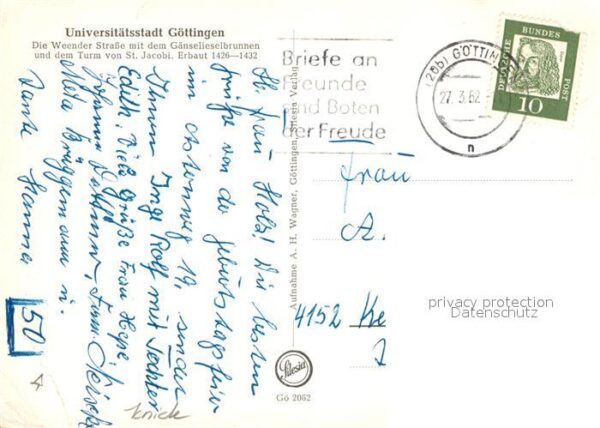 Universitätsstadt Göttingen
Die Weender Straße mit dem Gänselieselbrunnen
und dem Turm von St. Jacobi. Erbaut 1426—1432
Lb. Frau Holz! Die besten
Grüße von der Geburtstagsfeier
im Ostenweg 19, senden
Ihnen Inge Rolf mit Tochter
Edith, Viele Grüße Frau Hepe,
Johanna Frau
Meta Brüggemann u.
Tante Hanna
50
Aufnahme A. H. Wagner, Göttingen, Silesia Verlag
Silesia
Gö 2052
Briefe an
Freunde
sind Boten
der Freude
(20b) GÖTTINGEN
27.3.62
n
DEUTSCHE BUNDESPOST
10
Frau
A.
4152 Ke
privacy protection
Datenschutz
knick